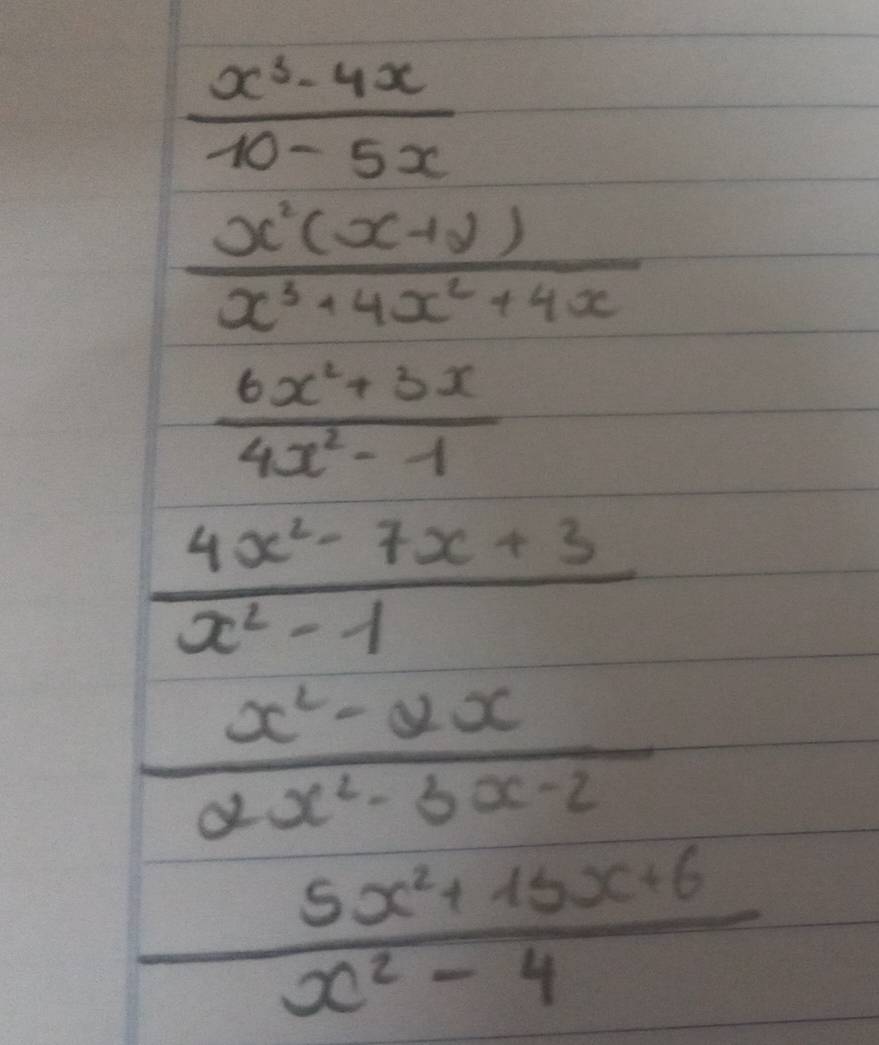 x³ - 4x
10 - 5x
x²(x+2)
x³ + 4x² + 4x
6x² + 3x
4x² - 1
4x² - 7x + 3
x² - 1
x² - 2x
2x² - 3x - 2
5x² + 13x + 6
x² - 4